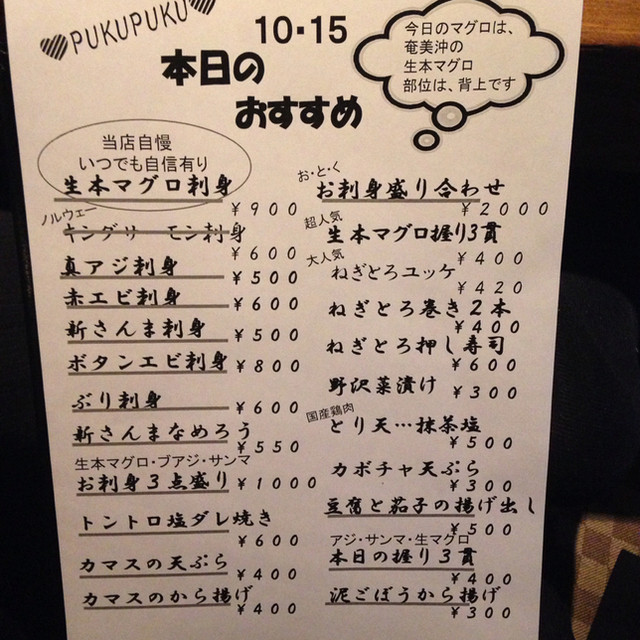 PUKUPUKU
10・15
本日の
おすすめ
今日のマグロは、
奄美沖の
生本マグロ
部位は、背上です
当店自慢
いつでも自信有り
生本マグロ刺身
￥900
ノルウェー
キングサーモン刺身
￥600
真アジ刺身
￥500
赤エビ刺身
￥600
新さんま刺身
￥500
ボタンエビ刺身
￥800
ぶり刺身
￥600
新さんまなめろう
￥550
生本マグロ・ブアジ・サンマ
お刺身3点盛り
￥1000
トントロ塩ダレ焼き
￥600
カマスの天ぷら
￥400
カマスのから揚げ
￥400
お・と・く
お刺身盛り合わせ
￥2000
超人気
生本マグロ握り3貫
￥400
大人気
ねぎとろユッケ
￥420
ねぎとろ巻き2本
￥400
ねぎとろ押し寿司
￥600
野沢菜漬け
￥300
国産鶏肉
とり天…抹茶塩
￥500
カボチャ天ぷら
￥300
豆腐と茄子の揚げ出し
￥500
アジ・サンマ・生マグロ
本日の握り3貫
￥400
泥ごぼうから揚げ
￥300